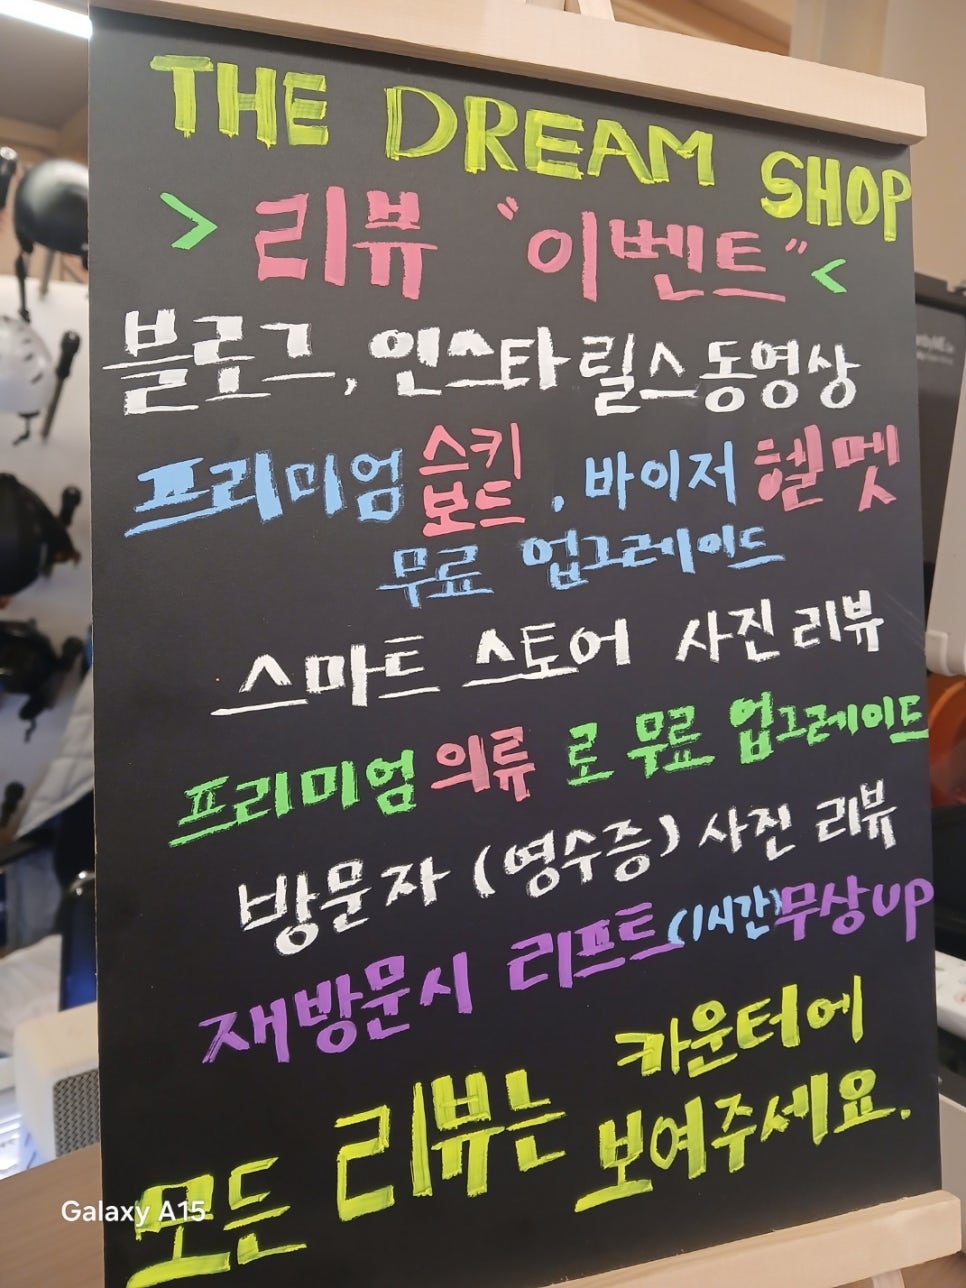 THE DREAM SHOP
> 리뷰 "이벤트" <
블로그, 인스타 릴스 동영상
프리미엄 스키 보드, 바이저 헬멧
무료 업그레이드
스마트 스토어 사진 리뷰
프리미엄 의류 로 무료 업그레이드
방문자 (영수증) 사진 리뷰
재방문시 리프트 (1시간) 무상 UP
모든 리뷰는 카운터에 보여주세요.
Galaxy A15